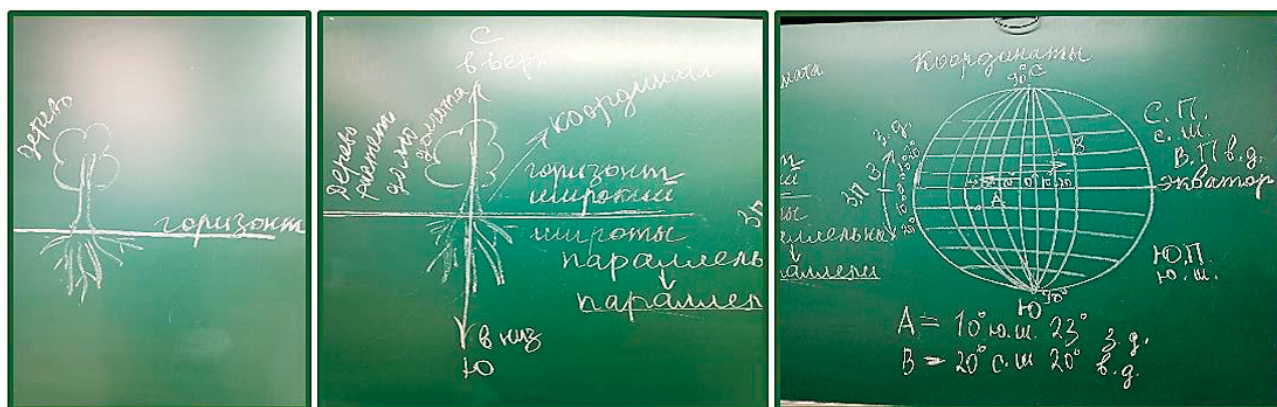 дерево
горизонт
С
вверх
Дерево
растет
долго
долгота
координата
горизонт
широкий
широты
параллель
параллел
в низ
Ю
Координаты
90° С
С.П.
с.ш.
В.П в.д.
экватор
З.П
з.д.
20°
10°
0°
10°
20°
0° 10° 20°
В
А
Ю.П.
ю.ш.
90°
Ю
А = 10° ю.ш. 23° з.д.
В = 20° с.ш 20° в.д.